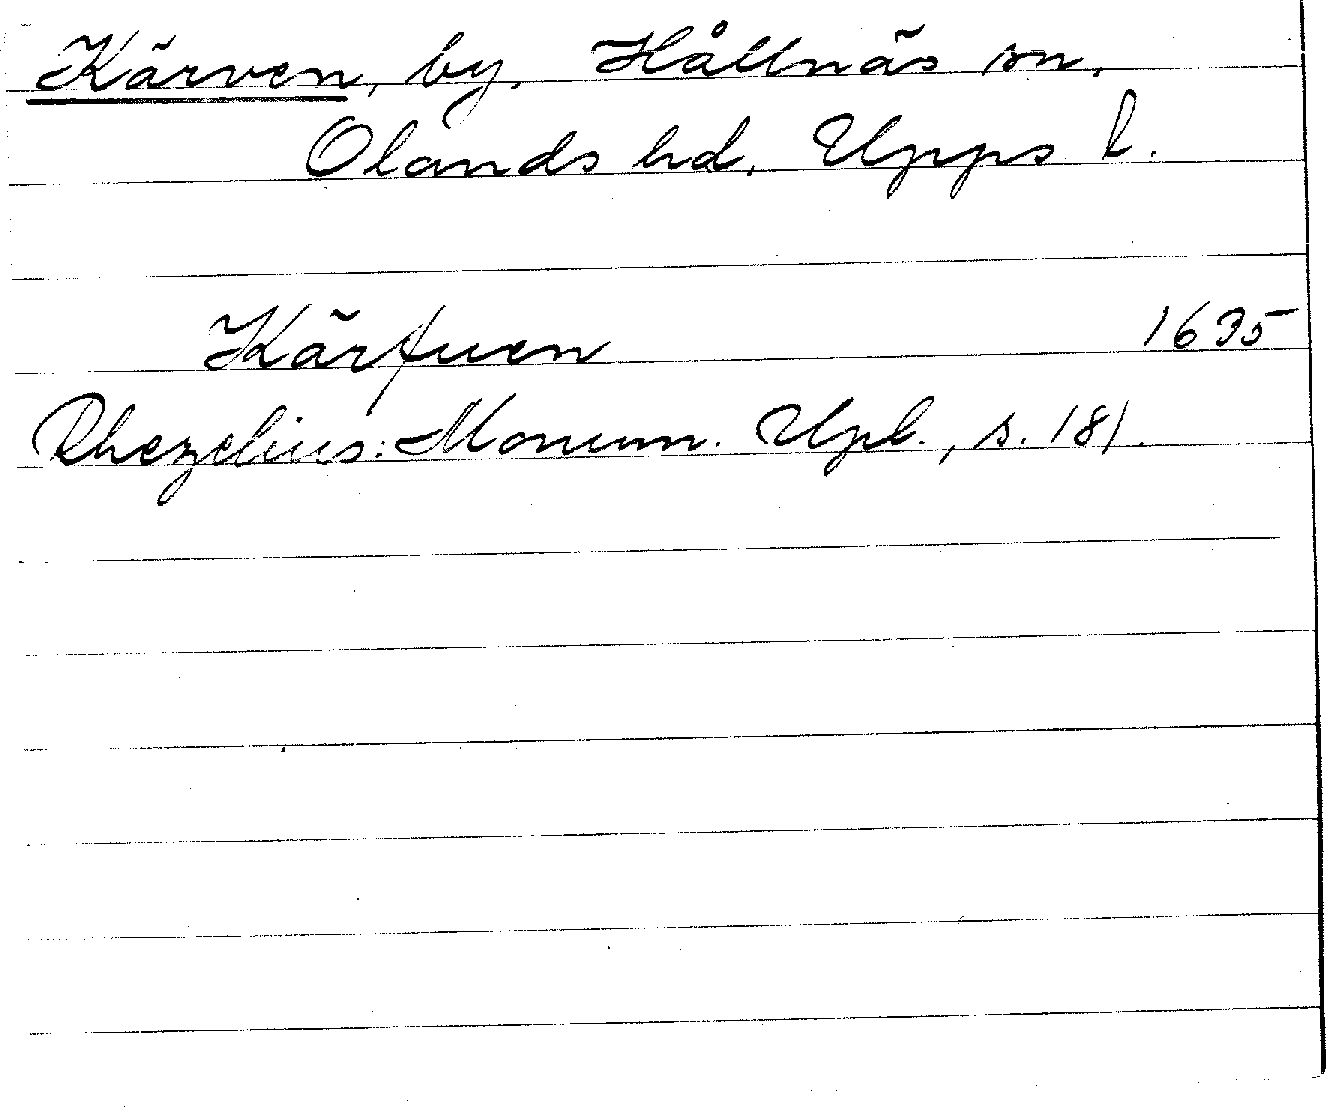 Kärven, by, Hållnäs sn,
Olands hd, Upps l.
Kärfuen 1635
Rhezelius: Monum. Upl., s. 181.